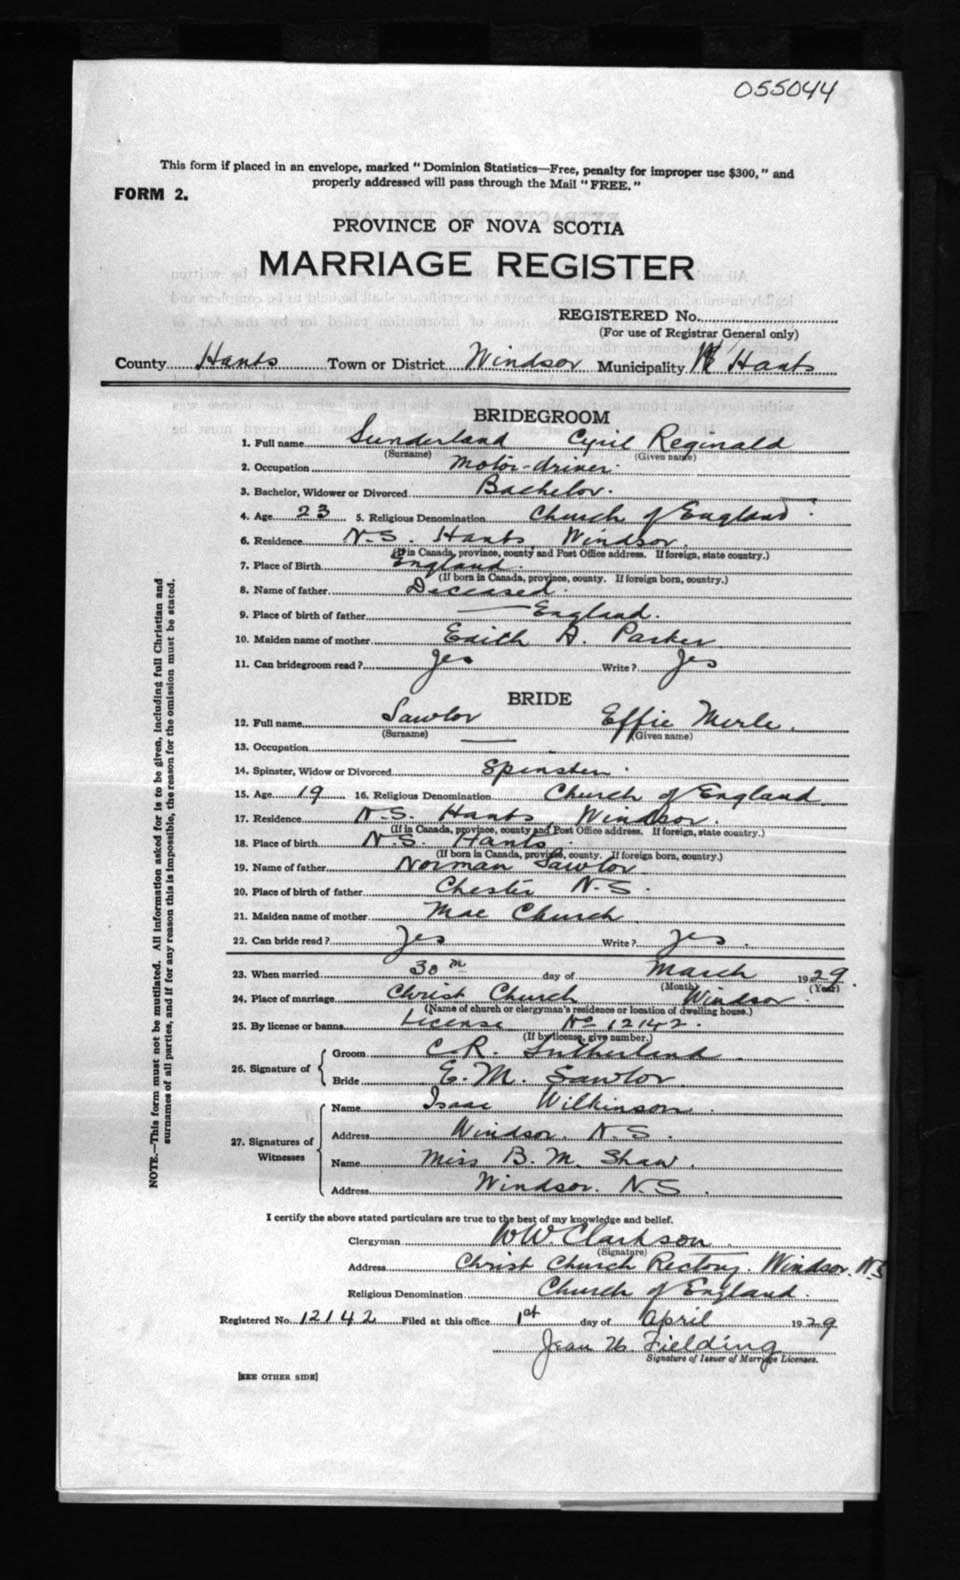 055044
This form if placed in an envelope, marked "Dominion Statistics—Free, penalty for improper use $300," and
properly addressed will pass through the Mail "FREE."
FORM 2.
PROVINCE OF NOVA SCOTIA
MARRIAGE REGISTER
REGISTERED No.
(For use of Registrar General only)
County Hants Town or District Windsor Municipality W Hants
BRIDEGROOM
1. Full name Sunderland Cyril Reginald
(Surname) (Given name)
2. Occupation Motor-driver.
3. Bachelor, Widower or Divorced Bachelor.
4. Age 23 5. Religious Denomination Church of England.
6. Residence N.S. Hants, Windsor.
(If in Canada, province, county and Post Office address. If foreign, state country.)
7. Place of Birth England.
(If born in Canada, province, county. If foreign born, country.)
8. Name of father Deceased.
9. Place of birth of father England.
10. Maiden name of mother Edith A. Parker
11. Can bridegroom read? Yes Write? Yes
BRIDE
12. Full name Sawlor Effie Merle.
(Surname) (Given name)
13. Occupation —
14. Spinster, Widow or Divorced Spinster.
15. Age 19 16. Religious Denomination Church of England
17. Residence N.S. Hants, Windsor.
(If in Canada, province, county and Post Office address. If foreign, state country.)
18. Place of birth N.S. Hants.
(If born in Canada, province, county. If foreign born, country.)
19. Name of father Norman Sawlor
20. Place of birth of father Chester N.S.
21. Maiden name of mother Mae Church
22. Can bride read? Yes Write? Yes.
23. When married 30th day of March 1929.
(Month) (Year)
24. Place of marriage Christ Church Windsor.
(Name of church or clergyman's residence or location of dwelling house.)
25. By license or banns License No 12142.
(If by license, give number.)
26. Signature of Groom C.R. Sutherland.
Bride E.M. Sawlor.
27. Signatures of Witnesses
Name Isaac Wilkinson.
Address Windsor. N.S.
Name Miss B. M. Shaw.
Address Windsor. N.S.
NOTE.—This form must not be mutilated. All information asked for is to be given, including full Christian and
surnames of all parties, and if for any reason this is impossible, the reason for the omission must be stated.
I certify the above stated particulars are true to the best of my knowledge and belief.
Clergyman WW. Clarkson.
(Signature)
Address Christ Church Rectory. Windsor. N.S
Religious Denomination Church of England.
Registered No. 12142 Filed at this office 1st day of April 1929
Jean W Fielding
Signature of Issuer of Marriage Licenses.
[SEE OTHER SIDE]